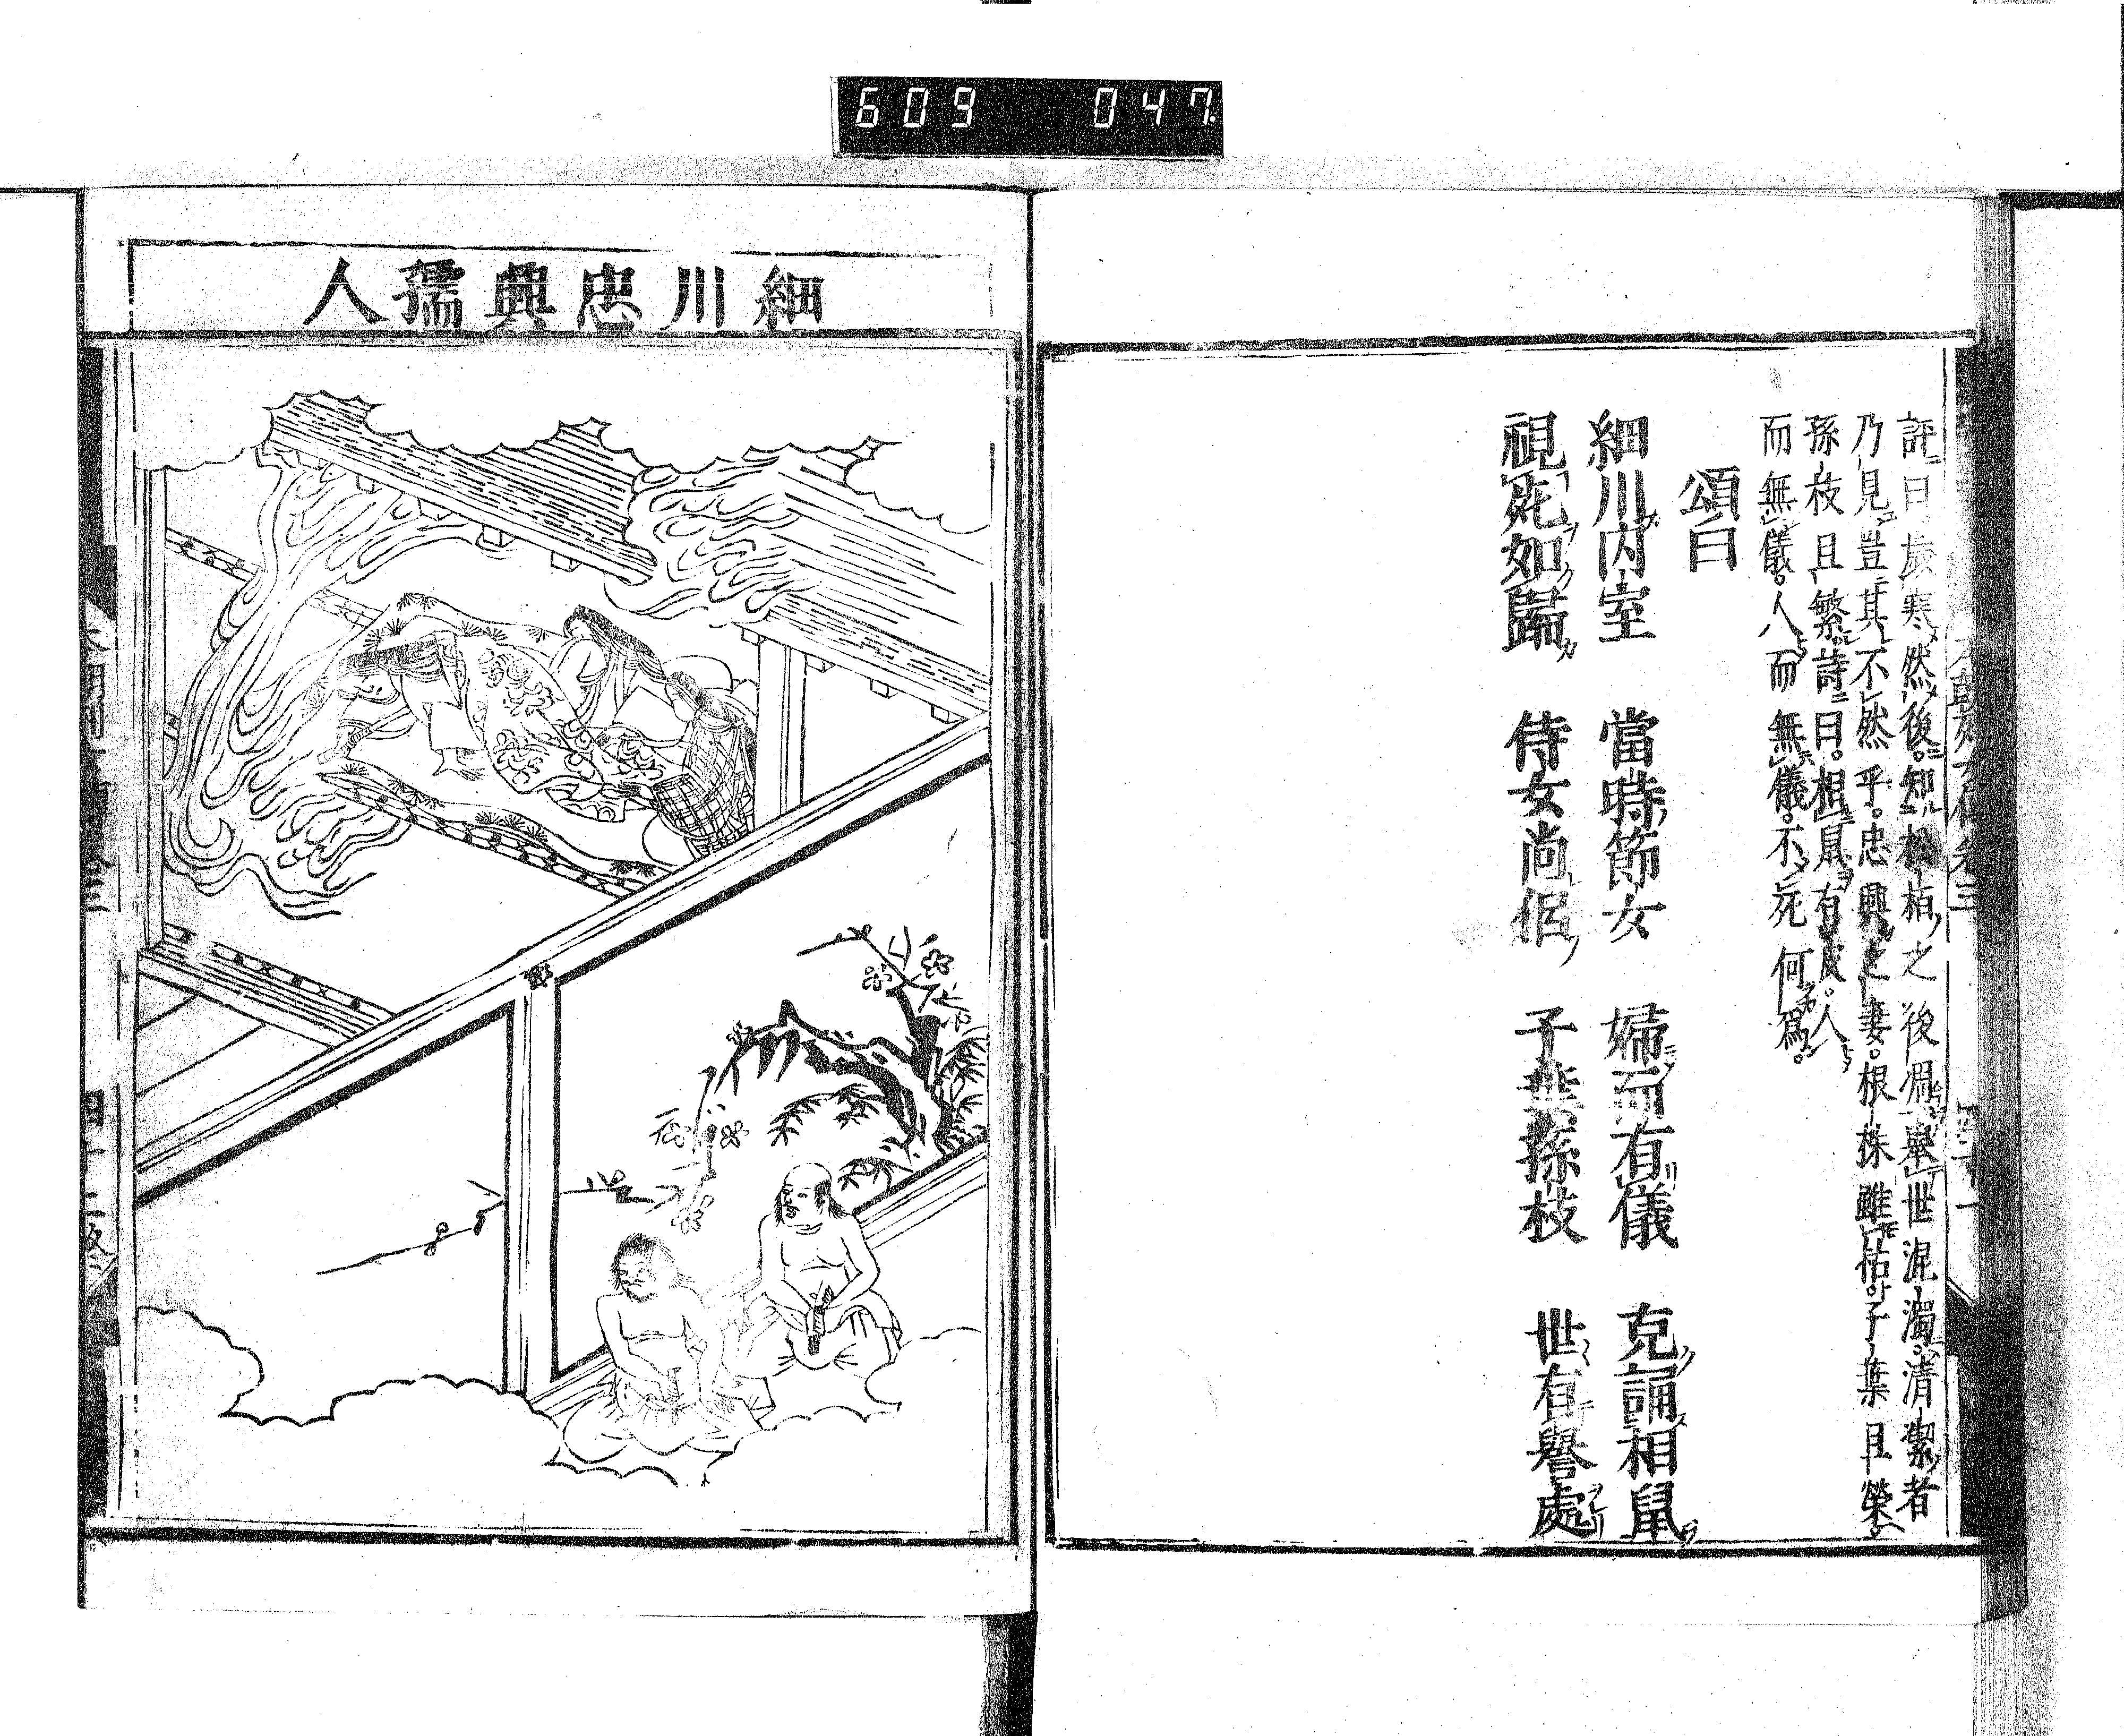 609 047
評曰歲寒然後。知松栢之後凋。舉世混濁。清潔者
乃見豈其不然乎。忠興之妻。根株雖枯。子葉且榮。
孫枝且繁。詩曰。相鼠有皮。人
而無儀。人而無儀。不死何爲。
頌曰
細川内室 當時節女 婦而有儀 克誦相鼠
視死如歸 侍女尚侶 子葉孫枝 世有譽處
細川忠興孺人